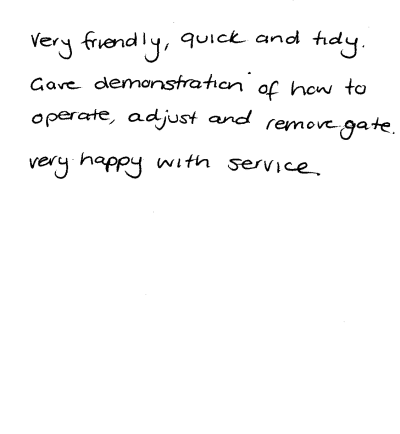 Very friendly, quick and tidy.
Gave demonstration of how to
operate, adjust and remove gate.
very happy with service.